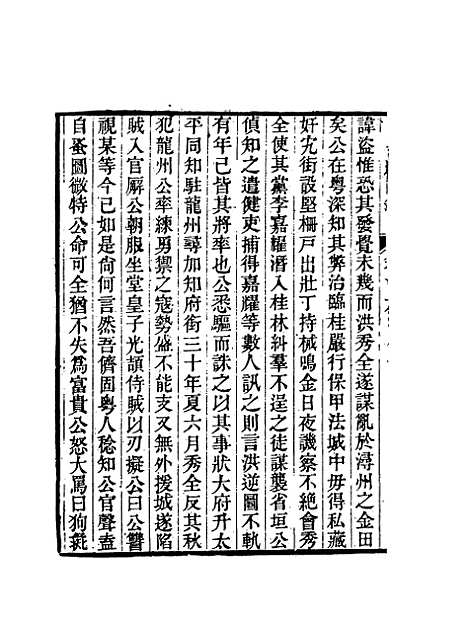 諱盜惟恐其發覺未幾而洪秀全遂謀亂於潯州之金田
矣公在粵深知其弊治臨桂嚴行保甲法城中毋得私藏
奸宄街設堅柵戸出壯丁持械鳴金日夜譏察不絶會秀
全使其黨李嘉耀潛入桂林糾羣不逞之徒謀襲省垣公
偵知之遣健吏捕得嘉耀等數人訊之則言洪逆圖不軌
有年己皆其將率也公悉驅而誅之以其事狀大府升太
平同知駐龍州尋加知府街三十年夏六月秀全反其秋
犯龍州公率練勇禦之寇勢盛不能支又無外援城遂陷
賊入官廨公朝服坐堂皇子光頡侍賊以刃擬公曰公讐
視某等今已如是尙何言然吾儕固粵人稔知公官聲盍
自爲圖微特公命可全猶不失爲富貴公怒大罵曰狗彘